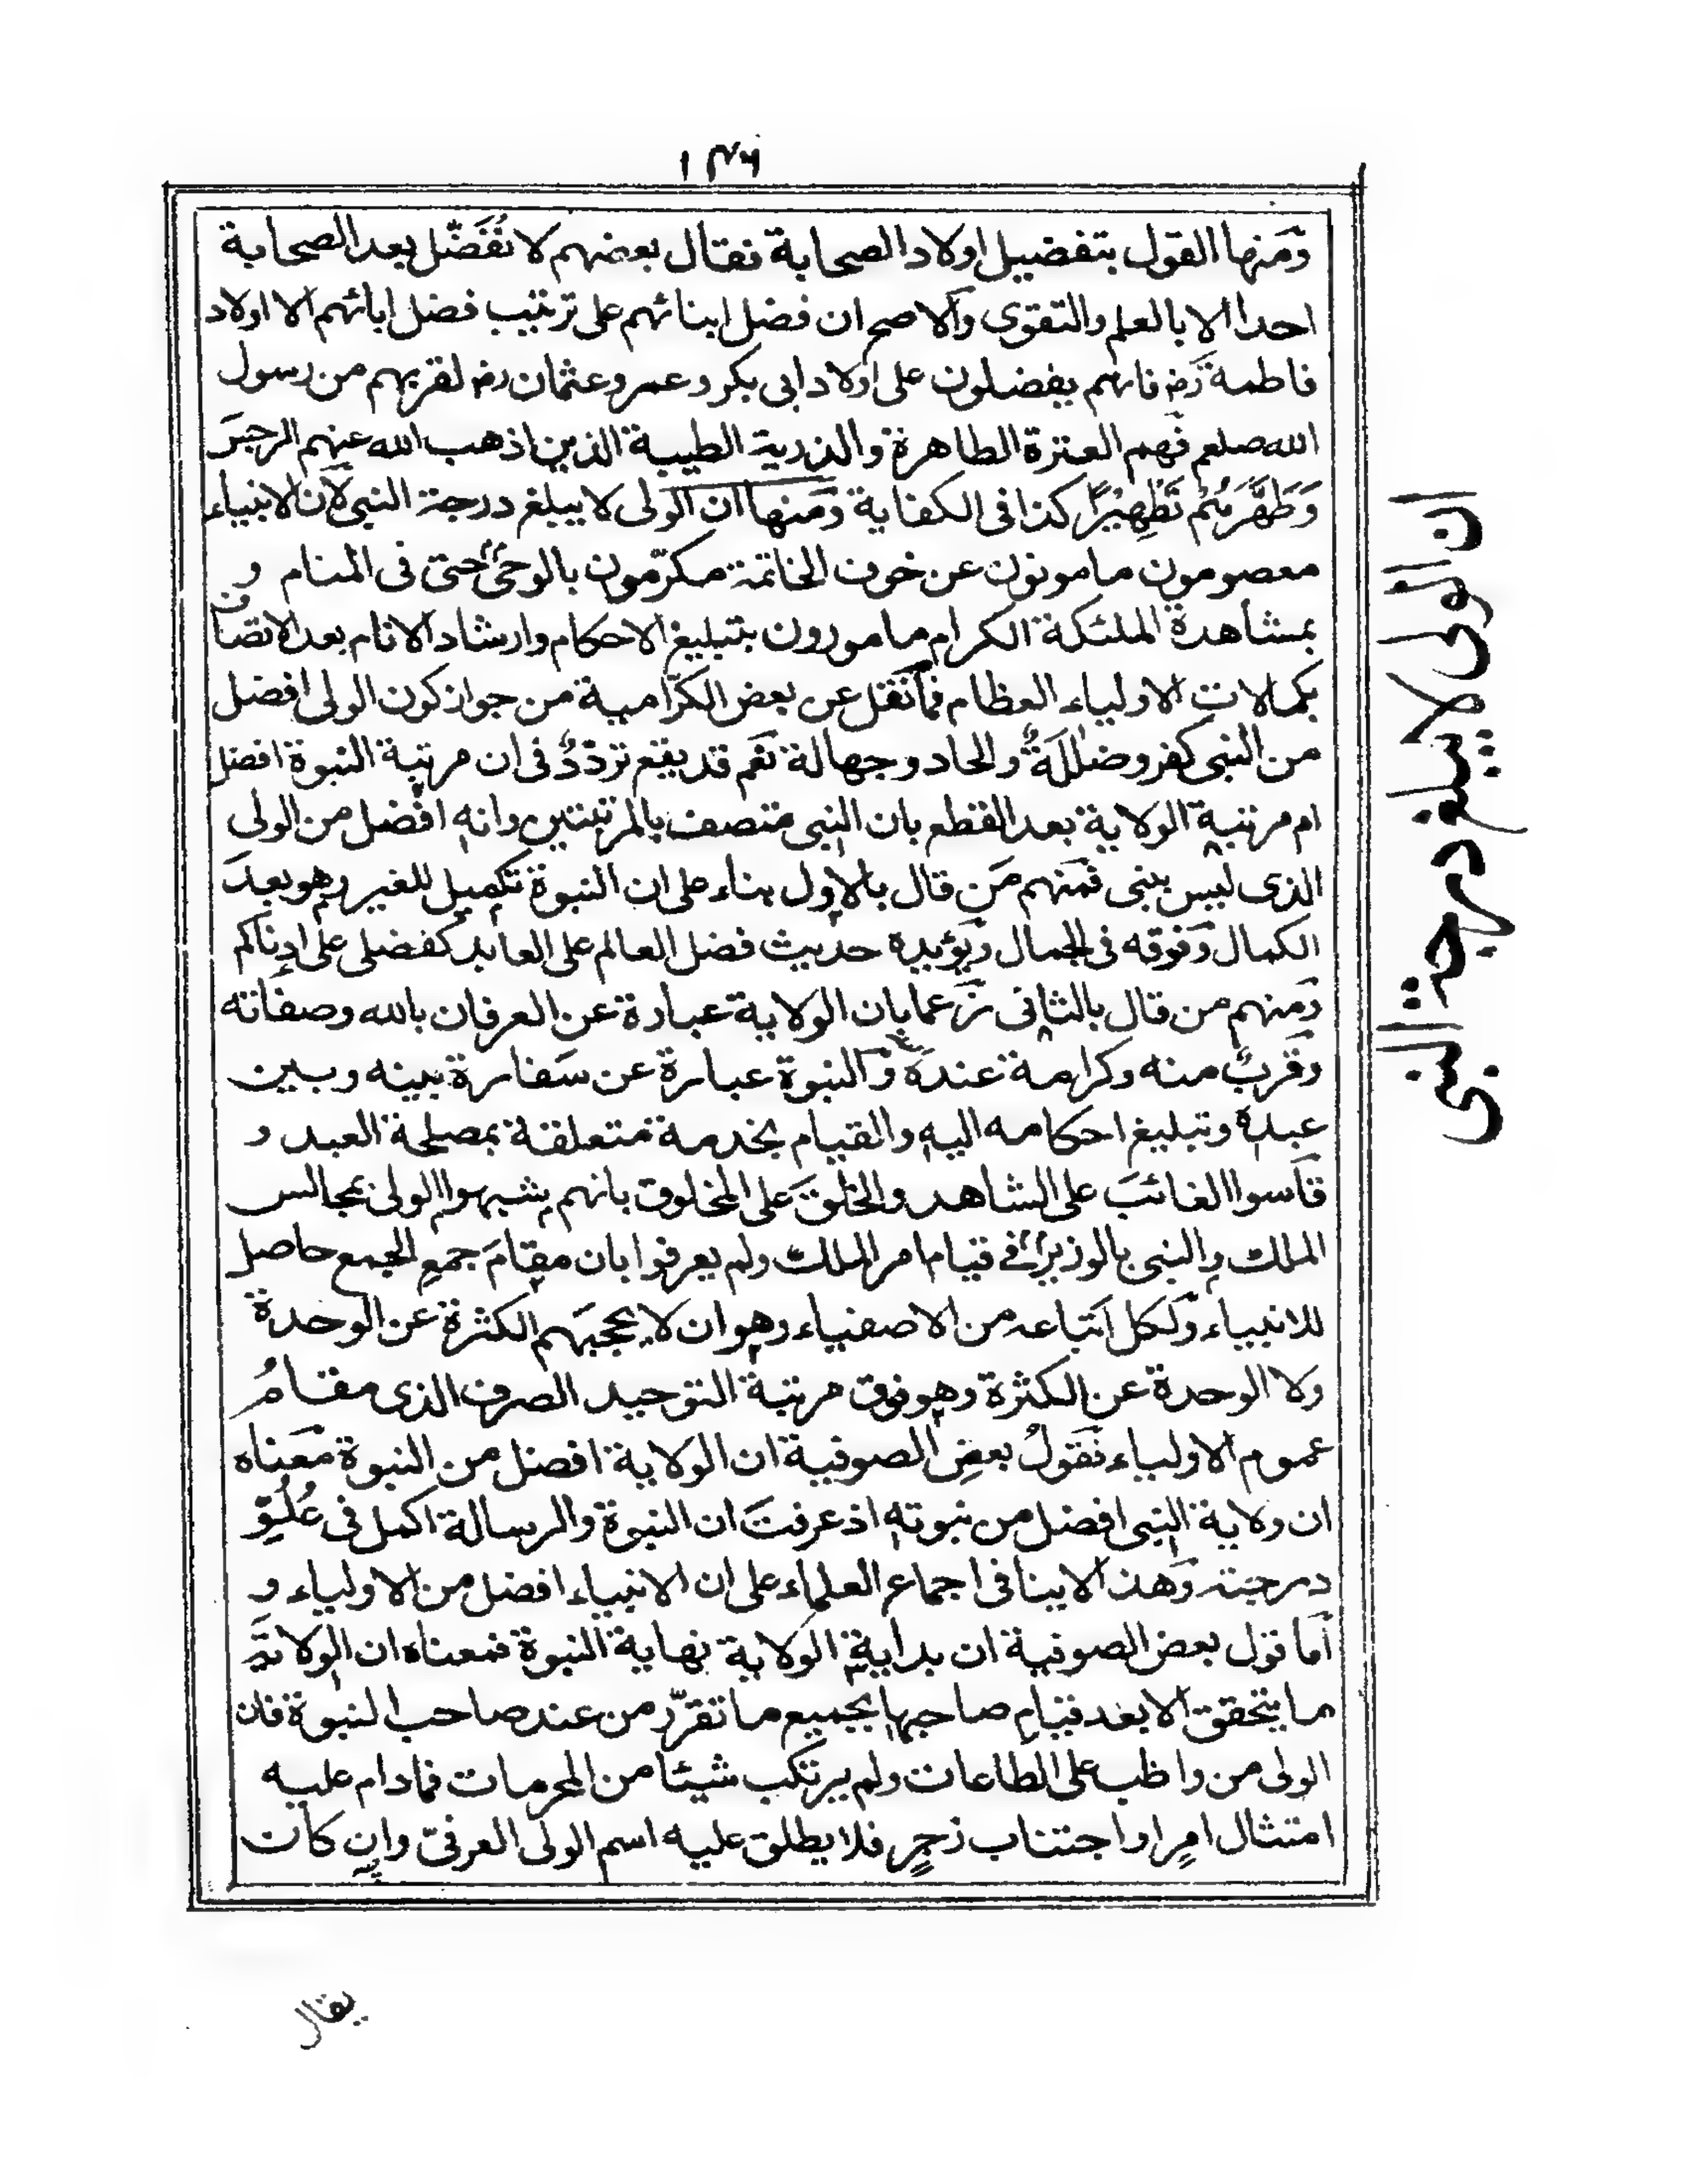 ١٤٦
ومنها القول بتفضيل اولاد الصحابة فقال بعضهم لا نُفَضّل بعد الصحابة
احدا الا بالعلم والتقوى والاصح ان فضل ابنائهم على ترتيب فضل ابائهم الا اولاد
فاطمة رضـ فانهم يفضلون على اولاد ابى بكر وعمر وعثمان رضـ لقربهم من رسول
الله صلعم فهم العترة الطاهرة والذرية الطيبة الذين اذهب الله عنهم الرجس
وَطَهَّرَهُمْ تَطْهِيْرًا كذا فى الكفاية ومنها ان الولى لا يبلغ درجة النبى لان الانبياء
معصومون مامونون عن خوف الخاتمة مكرّمون بالوحى حتى فى المنام و
بمشاهدة الملئكة الكرام مامورون بتبليغ الاحكام وارشاد الانام بعد الاتصاف
بكمالات الاولياء العظام فما نقل عن بعض الكرّامية من جواز كون الولى افضل
من النبى كفر وضلالة والحاد وجهالة نعم قد يقع تردّدٌ فى ان مرتبة النبوة افضل
ام مرتبة الولاية بعد القطع بان النبى متصف بالمرتبتين وانه افضل من الولى
الذى ليس بنبى فمنهم من قال بالاول بناء على ان النبوة تكميل للغير وهو بعد
الكمال وفوقه فى الجمال ويؤيده حديث فضل العالم على العابد كفضلى على ادناكم
ومنهم من قال بالثانى زعما بان الولاية عبارة عن العرفان بالله وصفاته
وقربٌ منه وكرامة عنده والنبوة عبارة عن سفارة بينه وبين
عبده وتبليغ احكامه اليه والقيام بخدمة متعلقة بمصلحة العبد و
قاسوا الغائبَ على الشاهد والخلقَ على المخلوق بانهم يشبهوا الولى بمجالس
الملك والنبى بالوزير فى قيام امر الملك ولم يعرفوا بان مقامَ جمعِ الجمع حاصل
للانبياء ولكل اتباعه من الاصفياء وهو ان لا يحجبهم الكثرة عن الوحدة
ولا الوحدة عن الكثرة وهو فوق مرتبة التوحيد الصرف الذى مقامُ
عموم الاولياء فقولُ بعضِ الصوفية ان الولاية افضل من النبوة معناه
ان ولاية النبى افضل من نبوته اذ عرفتَ ان النبوة والرسالة اكمل فى عُلُوِّ
درجته وهذا لا ينافى اجماع العلماء على ان الانبياء افضل من الاولياء و
اما قول بعض الصوفية ان بداية الولاية نهاية النبوة فمعناه ان الولاية
ما يتحقق الا بعد قيام صاحبها بجميع ما تقرّر من عند صاحب النبوة فان
الولى من واظب على الطاعات ولم يرتكب شيئا من المحرمات فمادام عليه
امتثال امرٍ او اجتناب زجرٍ فلا يطلق عليه اسم الولى العرفىّ وان كان
يقال
ان الولى لا يبلغ درجة النبى